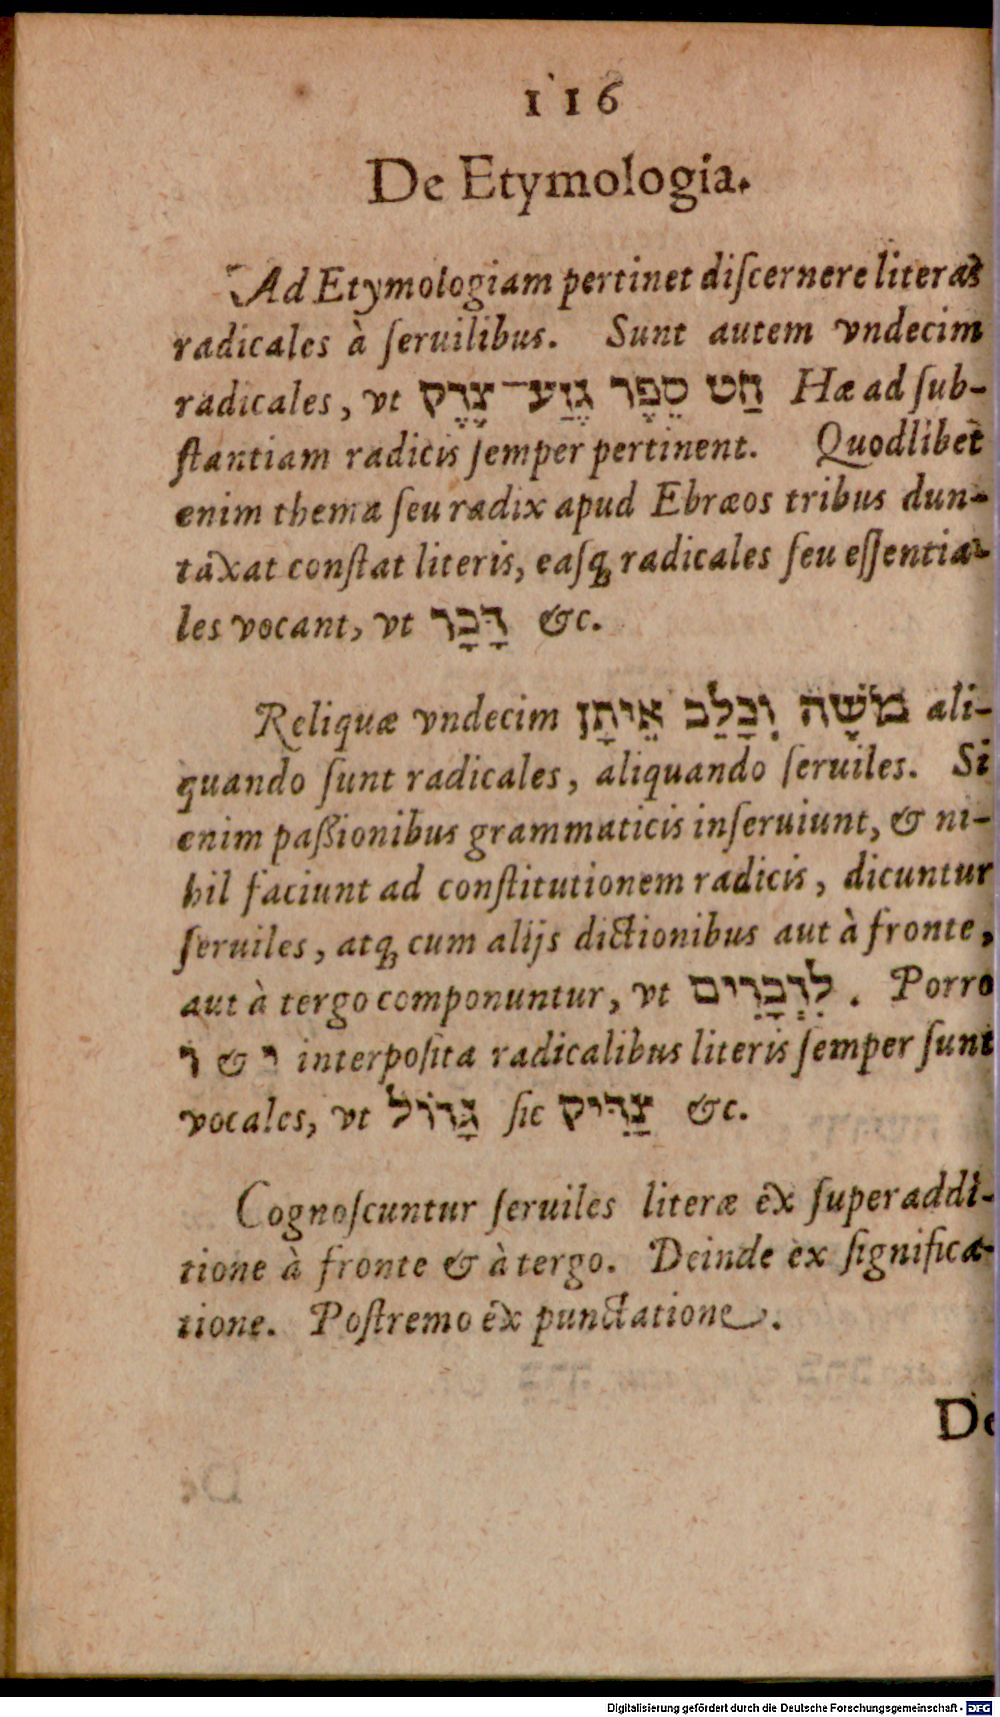 116
De Etymologia.
Ad Etymologiam pertinet diſcernere literas
radicales à ſeruilibus. Sunt autem vndecim
radicales, vt חַט סֵפֶר גְּזַע־צֶדֶק Hæ ad ſub-
ſtantiam radicis ſemper pertinent. Quodlibet
enim thema ſeu radix apud Ebræos tribus dun-
taxat conſtat literis, easq́; radicales ſeu eſſentia-
les vocant, vt דָּבָר &c.
Reliquæ vndecim מֹשֶׁה וְכָלֵב אֵיתָן ali-
quando ſunt radicales, aliquando ſeruiles. Si
enim paßionibus grammaticis inſeruiunt, & ni-
hil faciunt ad conſtitutionem radicis, dicuntur
ſeruiles, atq; cum alijs dictionibus aut à fronte,
aut à tergo componuntur, vt לִדְבָרִים . Porro
ו & י interpoſita radicalibus literis ſemper ſunt
vocales, vt גָּדוֹל ſic צַדִּיק &c.
Cognoſcuntur ſeruiles literæ ex ſuperaddi-
tione à fronte & à tergo. Deinde ex ſignifica-
tione. Poſtremo ex punctatione.
De
Digitalisierung gefördert durch die Deutsche Forschungsgemeinschaft - DFG